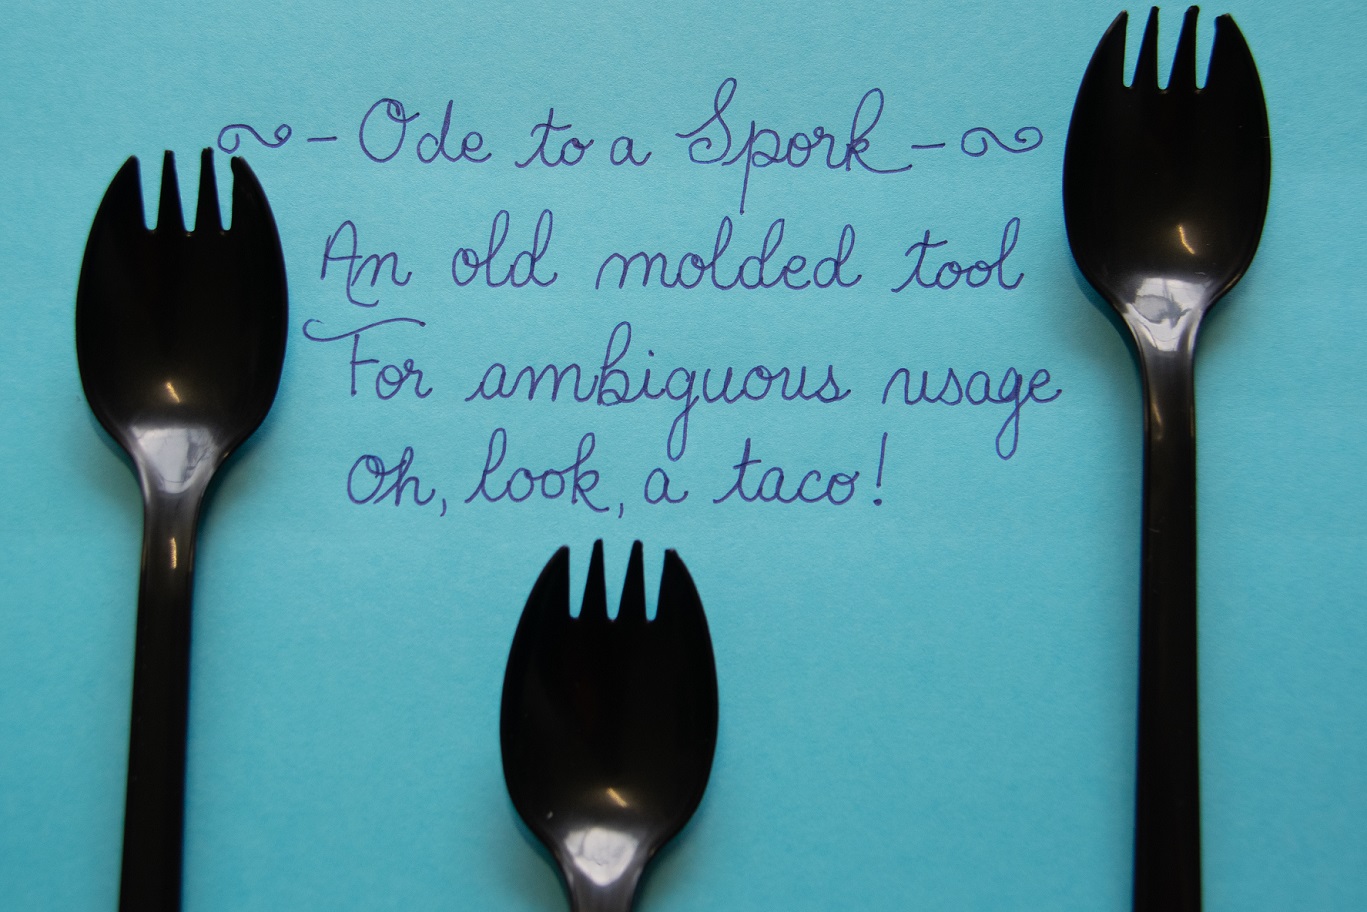 ~ - Ode to a Spork - ~
An old molded tool
For ambiguous usage
Oh, look, a taco!